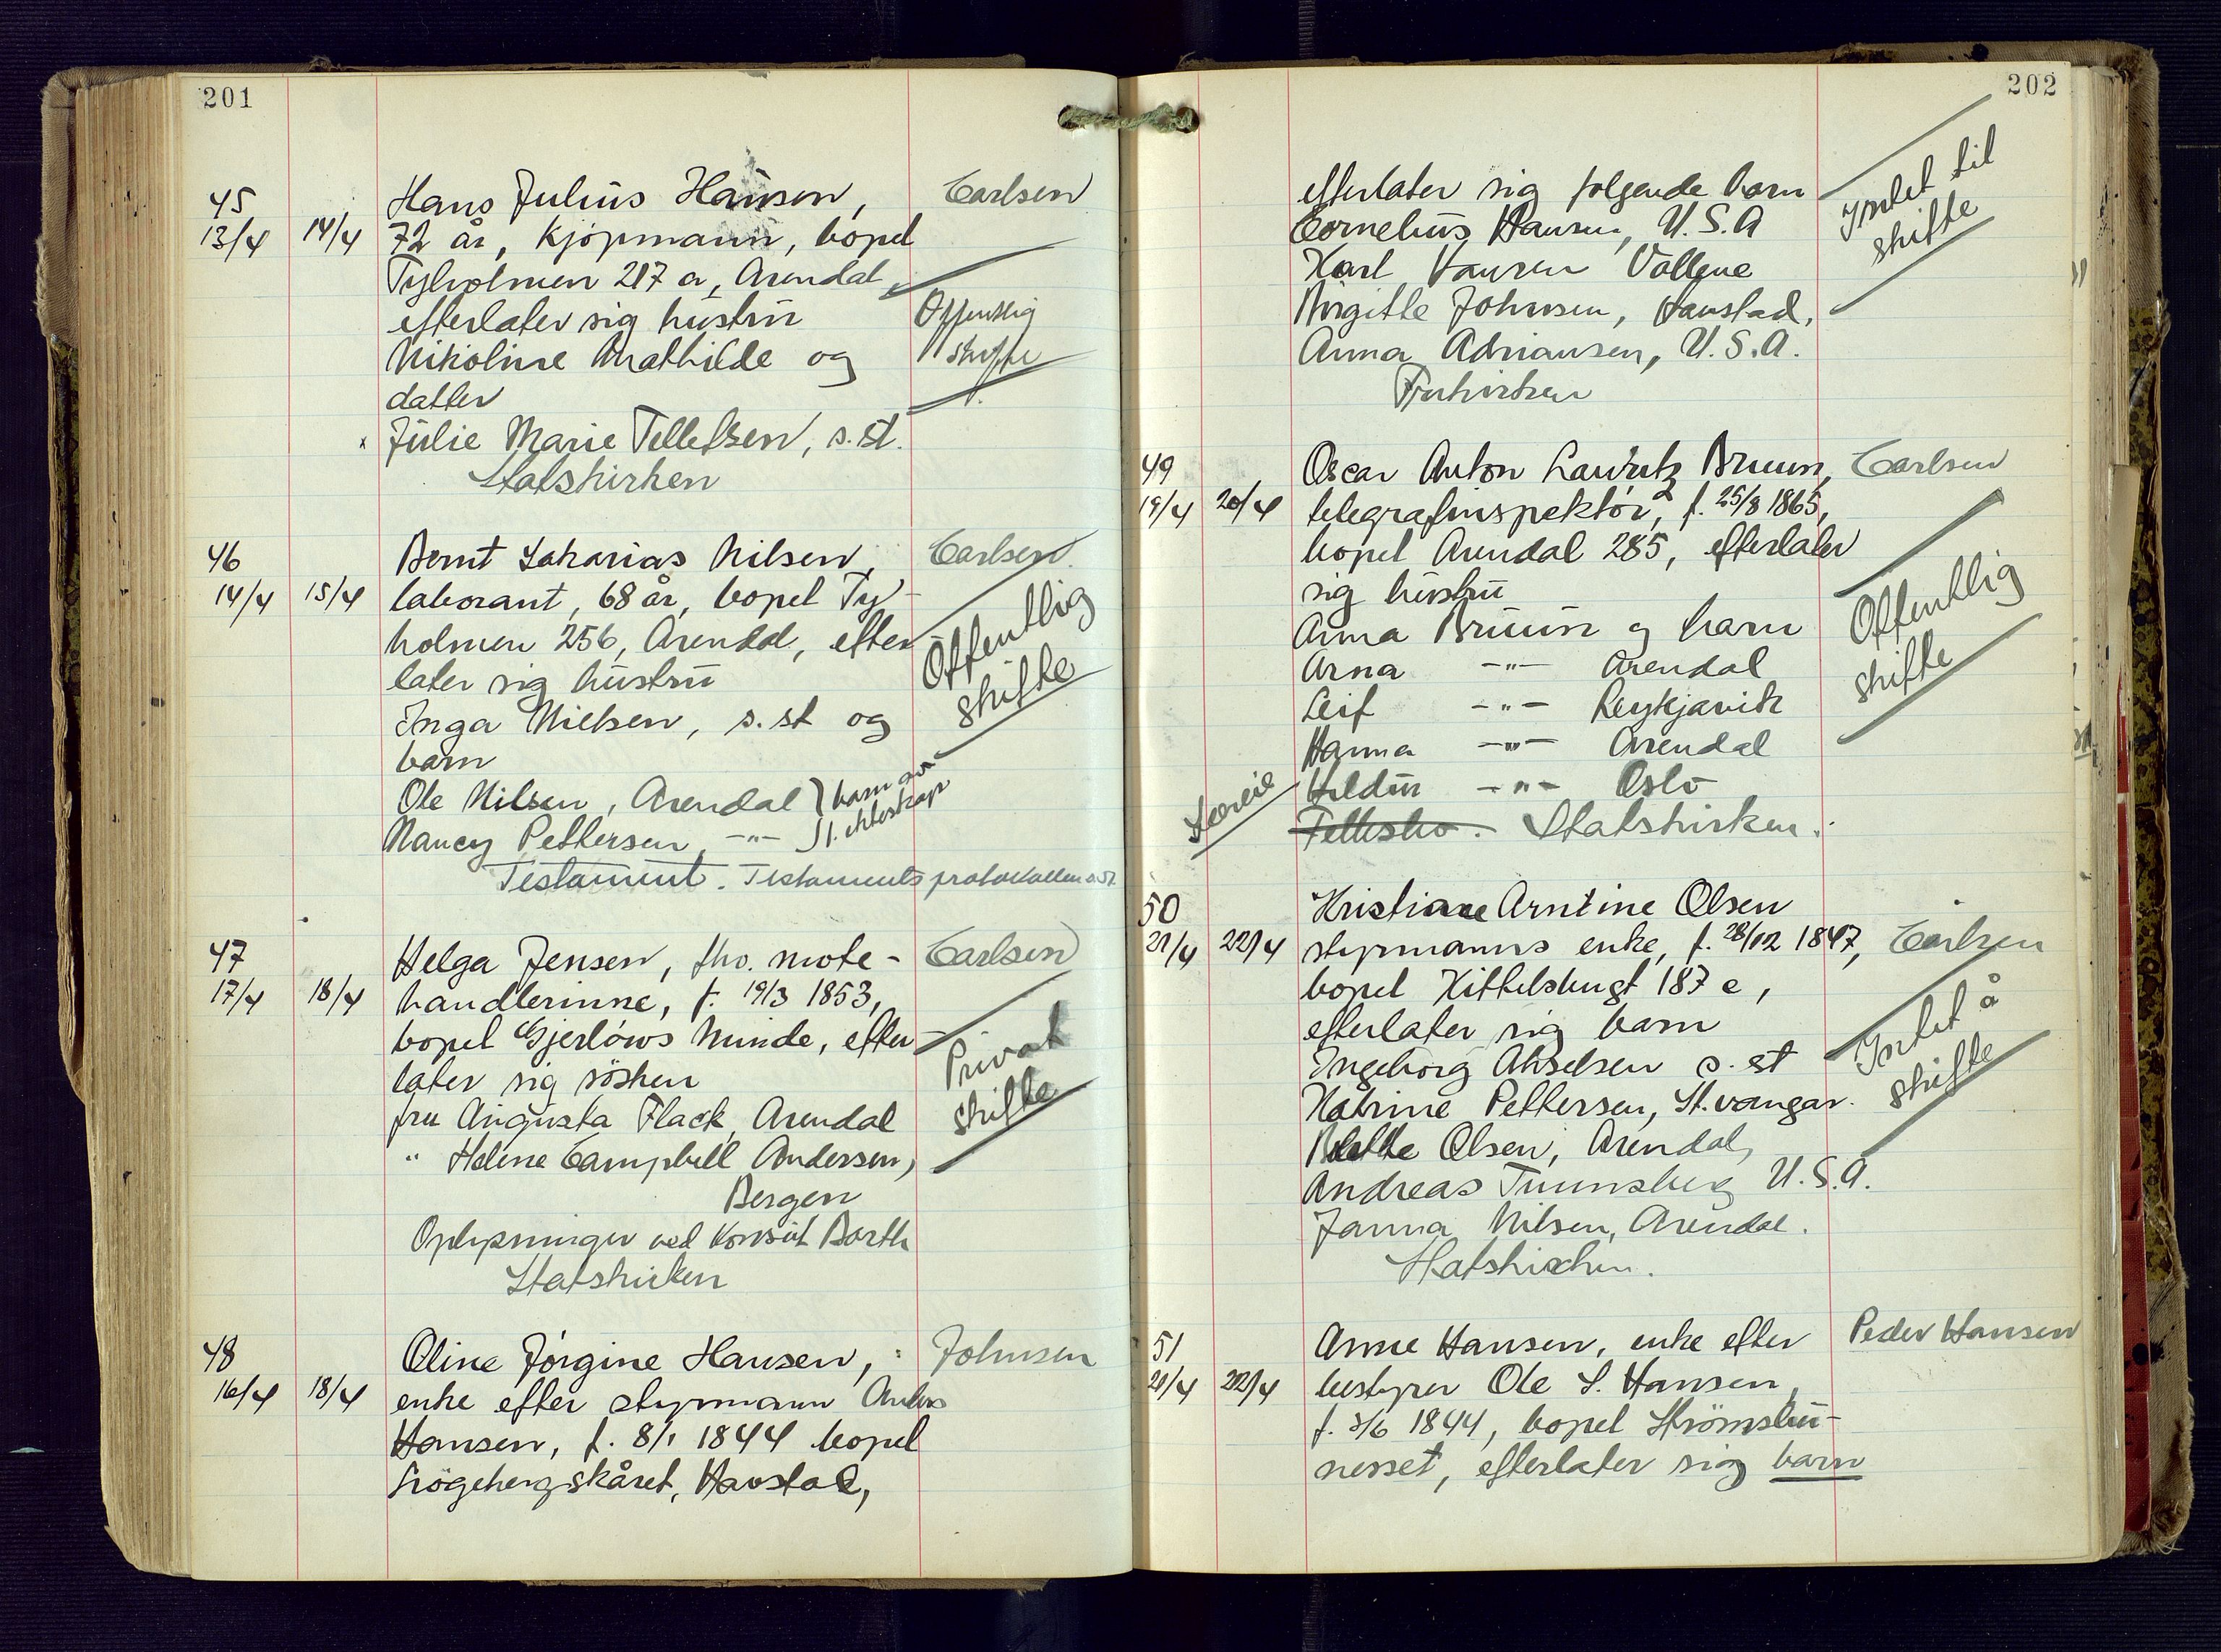 201
45
13/4 14/4
Hans Julius Hansen, Carlsen
72 år, kjøpmann, bopel
Tyholmen 217 a, Arendal,
efterlater sig hustru Offentlig
Nikoline Mathilde og skifte
datter
x Julie Marie Tellefsen, s. st.
Statskirken
46
14/4 15/4
Bernt Zakarias Nilsen, Carlsen.
laborant, 68 år, bopel Ty-
holmen 256, Arendal, efter
later sig hustru Offentlig
Inga Nielsen, s. st og skifte
barn
Ole Nilsen, Arendal } barn av
Nancy Pettersen -"- } 1. ekteskap
Testament. Testamentsprotokollen
47
17/4 18/4
Helga Jensen, fhv. mote- Carlsen
handlerinne, f. 19/3 1853,
bopel Gjerløws Minde, efter-
later sig søsken Privat
fru Augusta Flack, Arendal skifte
" Helene Campbell Andersen,
Bergen
Oplysninger ved Konsul Barth
Statskirken
48
16/4 18/4
Oline Jørgine Hansen, Johnsen
enke efter styrmann Anders
Hansen, f. 8/1 1844 bopel
Havstad,
202
efterlater sig følgende barn
Cornelius Hansen, U.S.A Intet til
Karl Hansen Vollene skifte
Birgitte Johnsen, Havstad,
Anna Adriansen, U.S.A.
Frikirken
49
19/4 20/4
Oscar Anton Lauritz Bruun, Carlsen
telegrafinspektør, f. 25/8 1865,
bopel Arendal 285, efterlater
sig hustru
Anna Bruun og barn Offentlig
Arna -"- Arendal skifte
Leif -"- Reykjavik
Hanna -"- Arendal
Særeie Haldur -"- Oslo
Fellesbo. Statskirken.
50
21/4 22/4
Kristiane Arntine Olsen
styrmanns enke, f. 28/12 1847, Carlsen
bopel Kittelsbugt 187 e,
efterlater sig barn Intet å
Ingeborg Akselsen s. st skifte
Katrine Pettersen, St.vanger.
Olsen, Arendal,
Andreas Tunnsberg U.S.A.
Janna Nilsen, Arendal.
Statskirken.
51
21/4 22/4
Anne Hansen, enke efter Peder Hansen
bestyrer Ole S. Hansen,
f. 3/6 1844, bopel Strømsbu-
nesset, efterlater sig barn